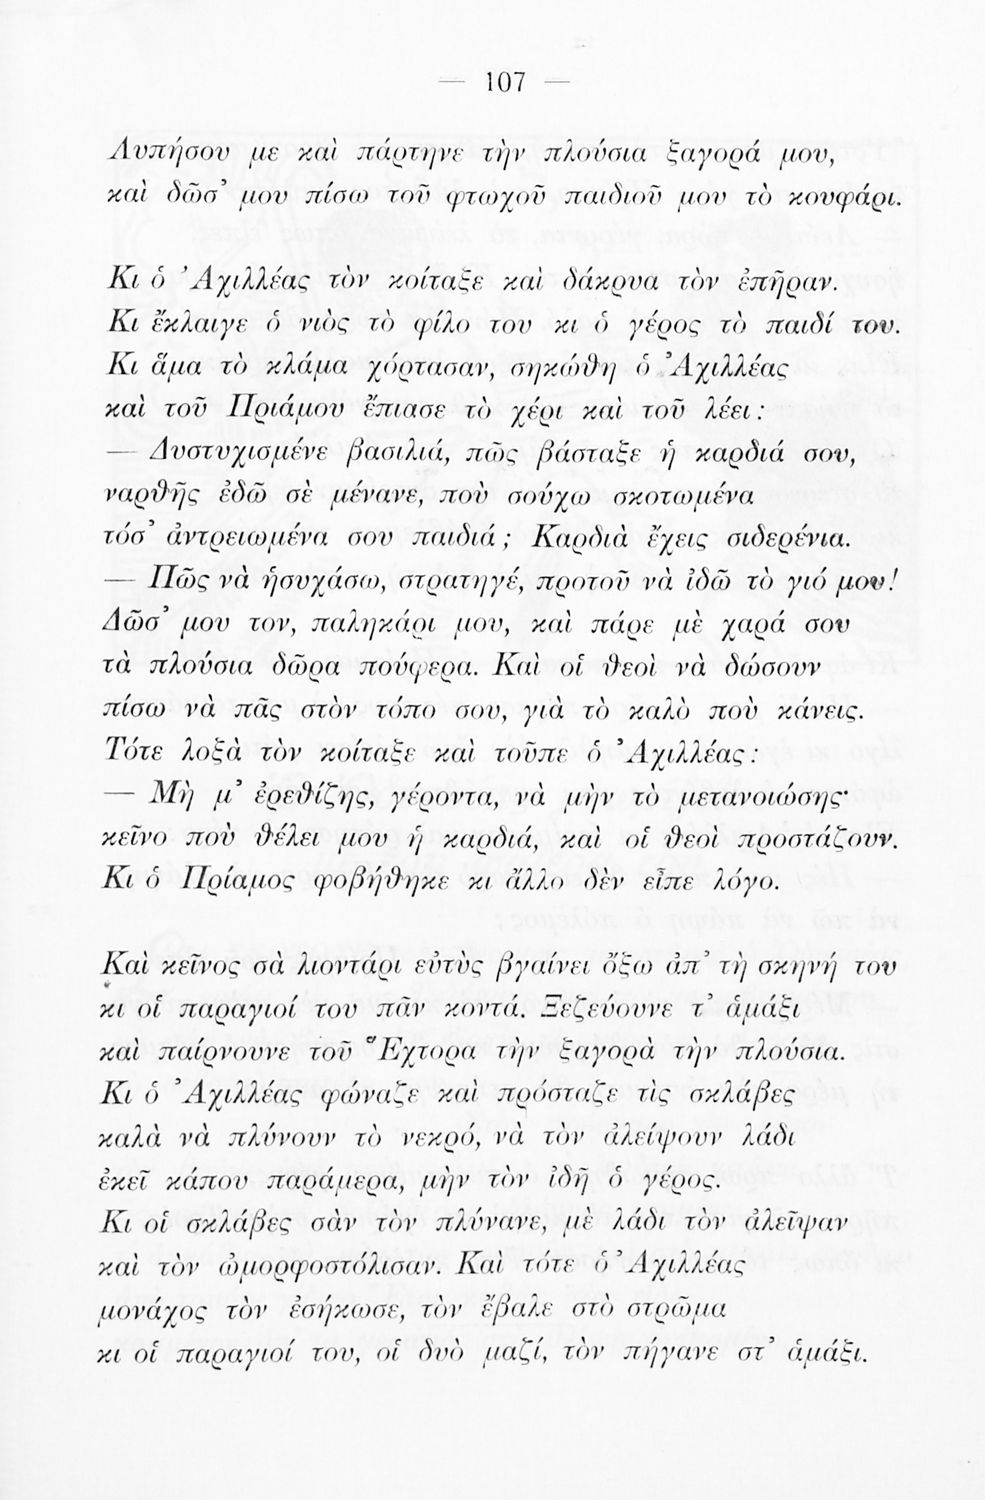 — 107 —
Λυπήσου με καὶ πάρτηνε τὴν πλούσια ξαγορά μου,
καὶ δῶσ᾿ μου πίσω τοῦ φτωχοῦ παιδιοῦ μου τὸ κουφάρι.
Κι ὁ ᾿Αχιλλέας τὸν κοίταξε καὶ δάκρυα τὸν ἐπῆραν.
Κι ἔκλαιγε ὁ νιὸς τὸ φίλο του κι ὁ γέρος τὸ παιδί του.
Κι ἅμα τὸ κλάμα χόρτασαν, σηκώθη ὁ ᾿Αχιλλέας
καὶ τοῦ Πριάμου ἔπιασε τὸ χέρι καὶ τοῦ λέει:
— Δυστυχισμένε βασιλιά, πῶς βάσταξε ἡ καρδιά σου,
ναρθῆς ἐδῶ σὲ μένανε, ποὺ σούχω σκοτωμένα
τόσ᾿ ἀντρειωμένα σου παιδιά; Καρδιὰ ἔχεις σιδερένια.
— Πῶς νὰ ἡσυχάσω, στρατηγέ, προτοῦ νὰ ἰδῶ τὸ γιό μου!
Δῶσ᾿ μου τον, παληκάρι μου, καὶ πάρε μὲ χαρά σου
τὰ πλούσια δῶρα πούφερα. Καὶ οἱ θεοὶ νὰ δώσουν
πίσω νὰ πᾶς στὸν τόπο σου, γιὰ τὸ καλὸ ποὺ κάνεις.
Τότε λοξὰ τὸν κοίταξε καὶ τοῦπε ὁ ᾿Αχιλλέας:
— Μὴ μ᾿ ἐρεθίζης, γέροντα, νὰ μὴν τὸ μετανοιώσης·
κεῖνο ποὺ θέλει μου ἡ καρδιά, καὶ οἱ θεοὶ προστάζουν.
Κι ὁ Πρίαμος φοβήθηκε κι ἄλλο δὲν εἶπε λόγο.
Καὶ κεῖνος σὰ λιοντάρι εὐτὺς βγαίνει ὄξω ἀπ᾿ τὴ σκηνή του
κι οἱ παραγιοί του πᾶν κοντά. Ξεζεύουνε τ᾿ ἁμάξι
καὶ παίρνουνε τοῦ ῞Εχτορα τὴν ξαγορὰ τὴν πλούσια.
Κι ὁ ᾿Αχιλλέας φώναζε καὶ πρόσταζε τὶς σκλάβες
καλὰ νὰ πλύνουν τὸ νεκρό, νὰ τὸν ἀλείψουν λάδι
ἐκεῖ κάπου παράμερα, μὴν τὸν ἰδῆ ὁ γέρος.
Κι οἱ σκλάβες σὰν τὸν πλύνανε, μὲ λάδι τὸν ἀλεῖψαν
καὶ τὸν ὠμορφοστόλισαν. Καὶ τότε ὁ ᾿Αχιλλέας
μονάχος τὸν ἐσήκωσε, τὸν ἔβαλε στὸ στρῶμα
κι οἱ παραγιοί του, οἱ δυὸ μαζί, τὸν πήγανε στ᾿ ἁμάξι.